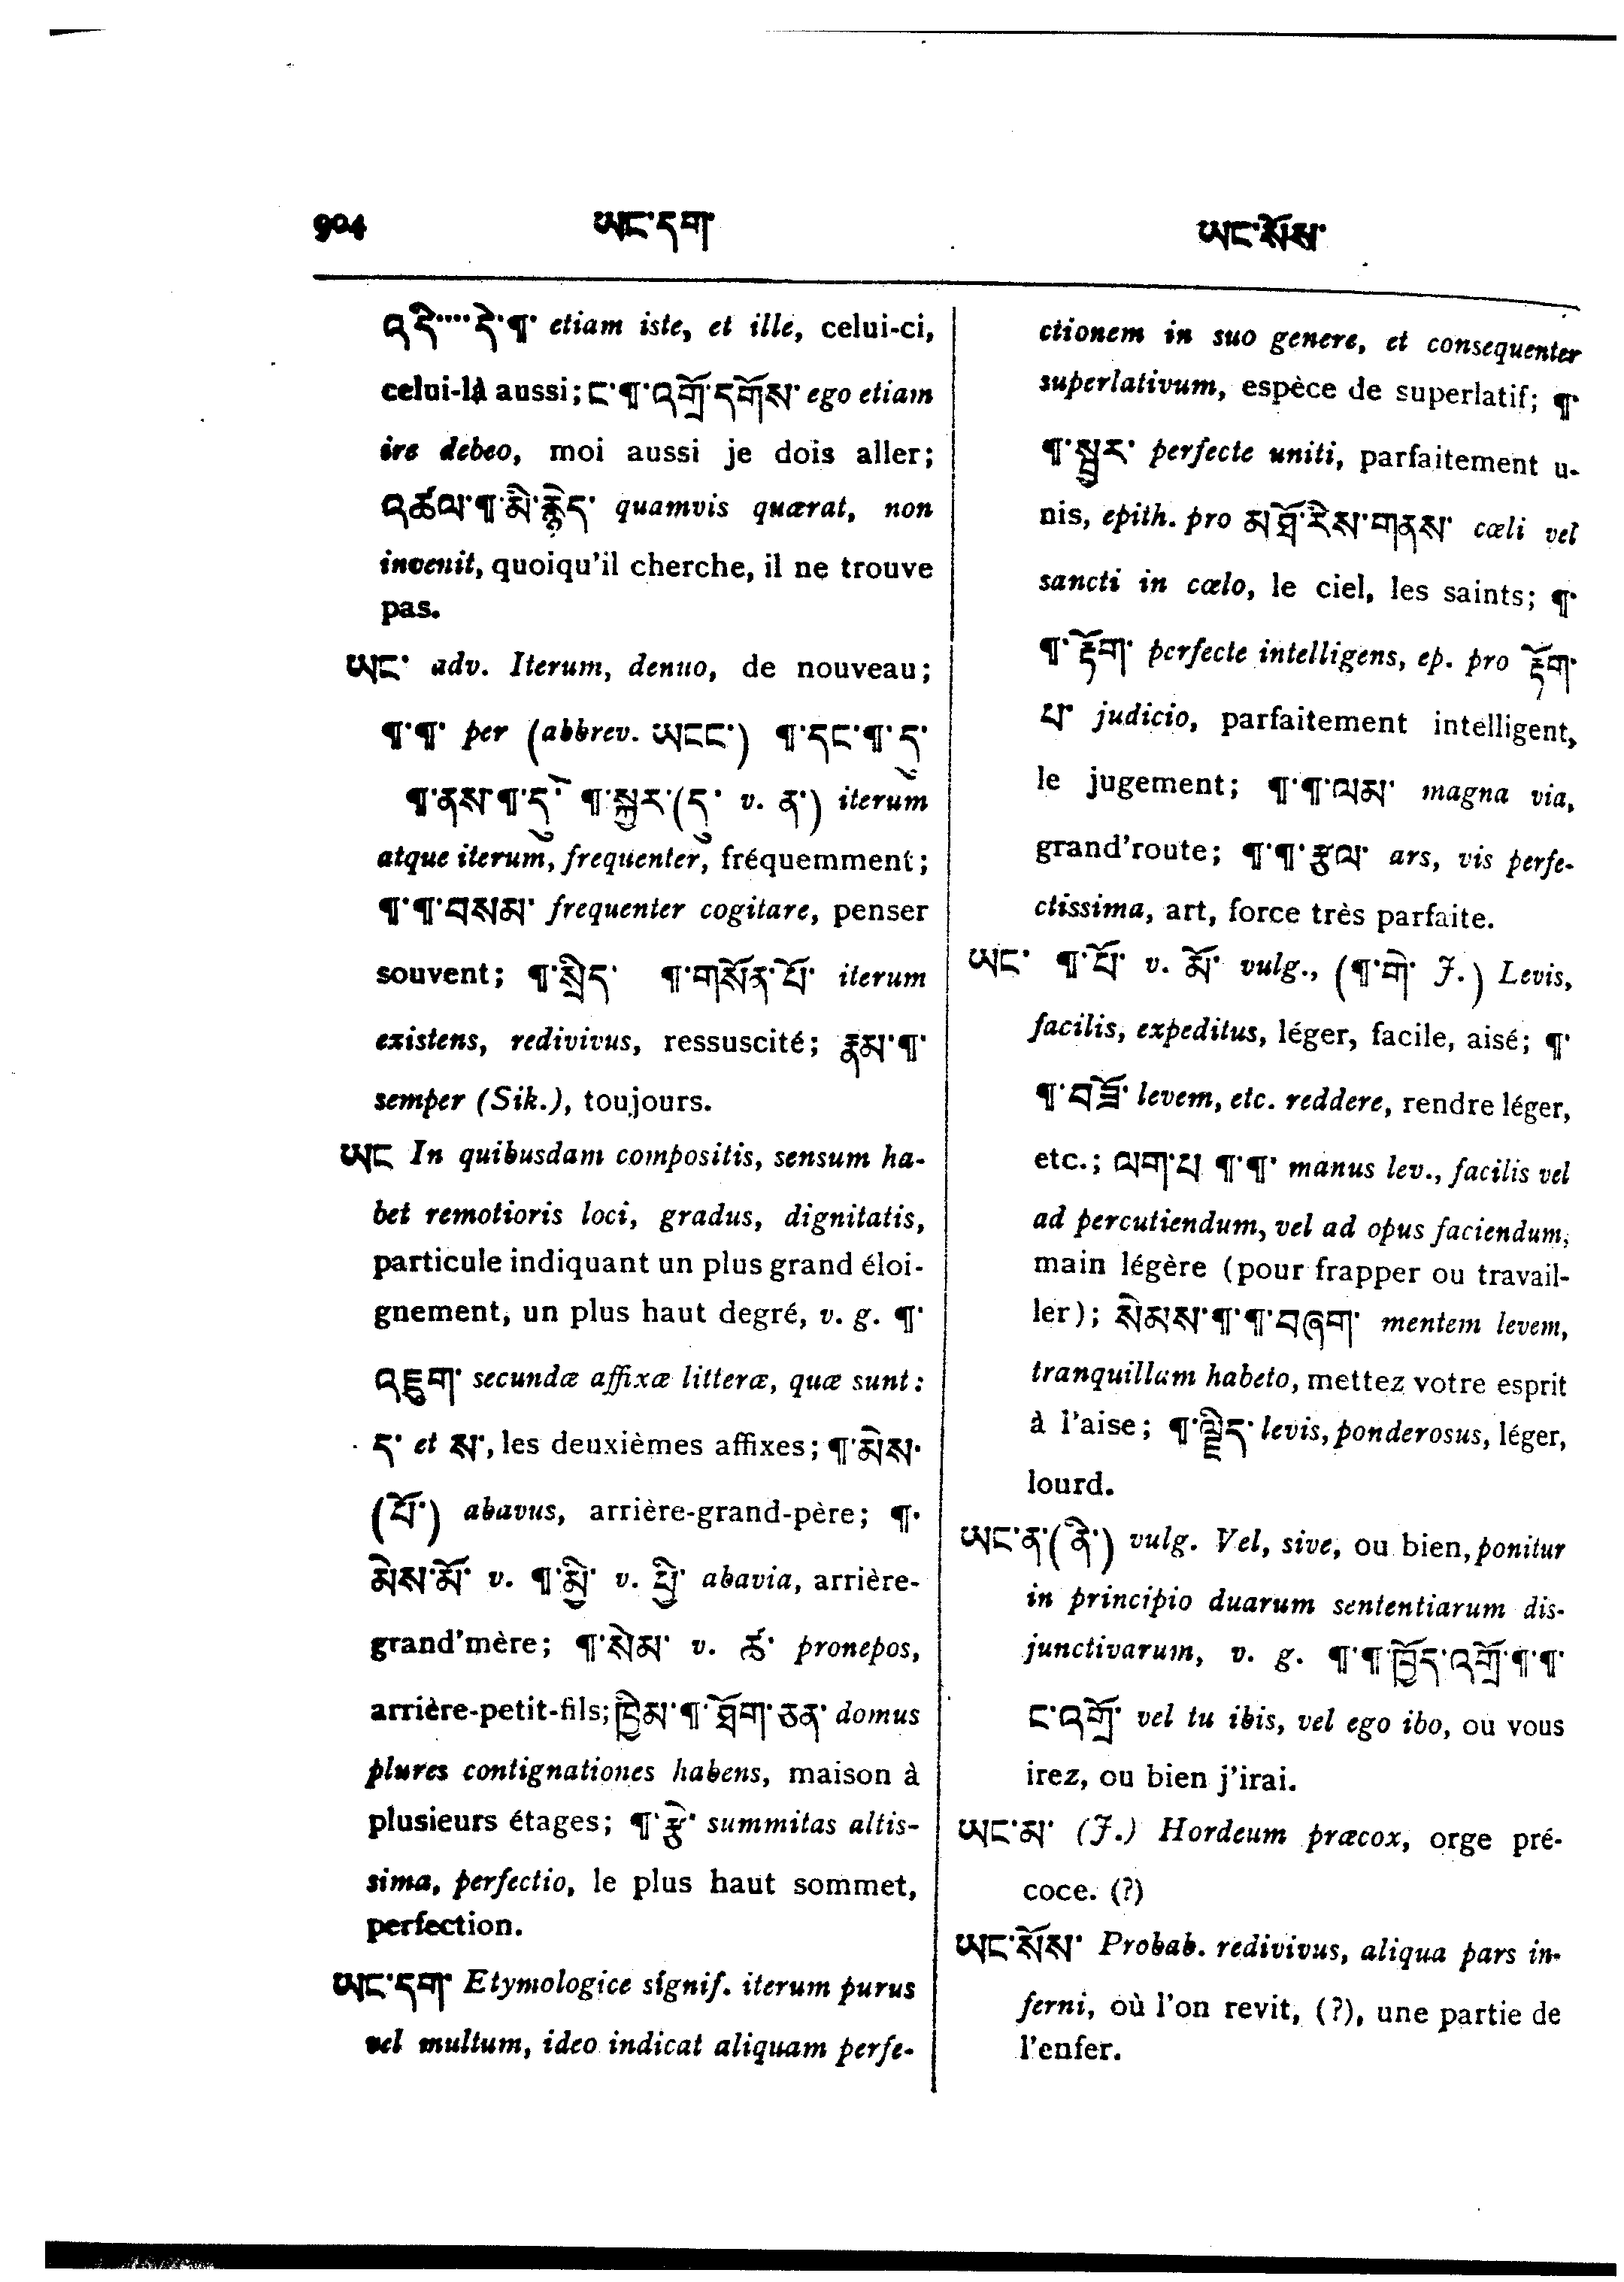 904 ཡང་དག་ ཡང་སོས་
འདི་་་་དེ་¶་ etiam iste, et ille, celui-ci,
celui-là aussi; ང་¶་འགྲོ་དགོས་ ego etiam
ire debeo, moi aussi je dois aller;
འཚལ་¶་མི་རྙེད་ quamvis quærat, non
invenit, quoiqu'il cherche, il ne trouve
pas.
ཡང་ adv. Iterum, denuo, de nouveau;
¶་¶་ per (abbrev. ཡངང་) ¶་དང་¶་དུ་
¶་ནས་¶་དུ་ ¶་སྐྱར་(དུ་ v. ན་) iterum
atque iterum, frequenter, fréquemment;
¶་¶་བསམ་ frequenter cogitare, penser
souvent; ¶་སྲིད་ ¶་གསོན་པོ་ iterum
existens, redivivus, ressuscité; རྣམ་¶་
semper (Sik.), toujours.
ཡང In quibusdam compositis, sensum ha-
bet remotioris loci, gradus, dignitatis,
particule indiquant un plus grand éloi-
gnement, un plus haut degré, v. g. ¶་
འཇུག་ secundæ affixæ litteræ, quæ sunt:
ད་ et ས་, les deuxièmes affixes; ¶་མེས་
(པོ་) abavus, arrière-grand-père; ¶་
མེས་མོ་ v. ¶་མྱི་ v. ཕྱི་ abavia, arrière-
grand'mère; ¶་སེམ་ v. ཚ་ pronepos,
arrière-petit-fils; ཁྱིམ་¶་ཐོག་ཅན་ domus
plures contignationes habens, maison à
plusieurs étages; ¶་རྩེ་ summitas altis-
sima, perfectio, le plus haut sommet,
perfection.
ཡང་དག་ Etymologice signif. iterum purus
vel multum, ideo indicat aliquam perfe-
ctionem in suo genere, et consequenter
superlativum, espèce de superlatif; ¶་
¶་སྦྱར་ perfecte uniti, parfaitement u-
nis, epith. pro མཐོ་རིས་གནས་ cæli vel
sancti in cælo, le ciel, les saints; ¶་
¶་རྟོག་ perfecte intelligens, ep. pro རྟོག་
པ་ judicio, parfaitement intelligent,
le jugement; ¶་¶་ལམ་ magna via,
grand'route; ¶་¶་རྩལ་ ars, vis perfe-
ctissima, art, force très parfaite.
ཡང་ ¶་པོ་ v. མོ་ vulg., (¶་གེ་ J.) Levis,
facilis, expeditus, léger, facile, aisé; ¶་
¶་བཟོ་ levem, etc. reddere, rendre léger,
etc.; ལག་པ ¶་¶་ manus lev., facilis vel
ad percutiendum, vel ad opus faciendum,
main légère (pour frapper ou travail-
ler); སེམས་¶་¶་བཞག་ mentem levem,
tranquillam habeto, mettez votre esprit
à l'aise; ¶་ལྗིད་ levis, ponderosus, léger,
lourd.
ཡང་ན་(ནི་) vulg. Vel, sive, ou bien, ponitur
in principio duarum sententiarum dis-
junctivarum, v. g. ¶་¶་ཁྱོད་འགྲོ་¶་¶་
ང་འགྲོ་ vel tu ibis, vel ego ibo, ou vous
irez, ou bien j'irai.
ཡང་མ་ (J.) Hordeum præcox, orge pré-
coce. (?)
ཡང་སོས་ Probab. redivivus, aliqua pars in-
ferni, où l'on revit, (?), une partie de
l'enfer.